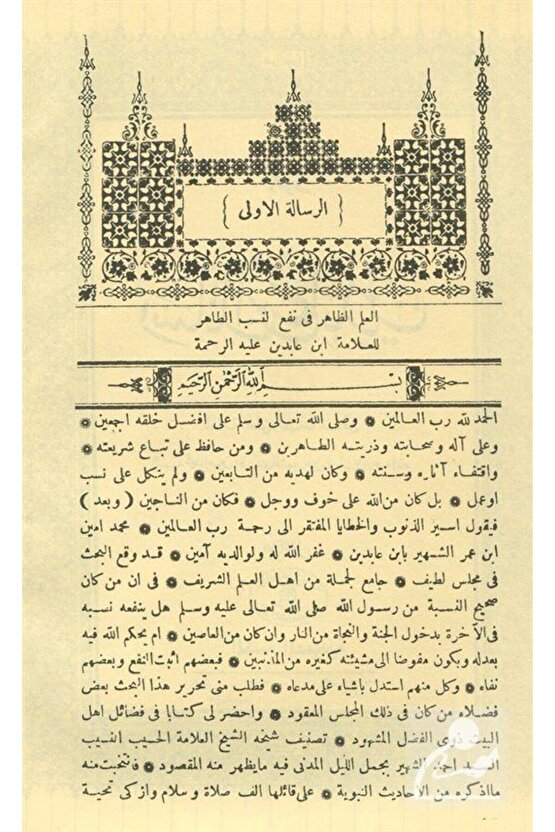 ﴿ الرسالة الاولى ﴾
العلم الظاهر فى نفع النسب الطاهر
للعلامة ابن عابدين عليه الرحمة
بسم الله الرحمن الرحيم
الحمد لله رب العالمين * وصلى الله تعالى وسلم على افضل خلقه اجمعين *
وعلى آله وصحابته وذريته الطاهرين * ومن حافظ على تباع شريعته *
واقتفاء آثاره وسنته * وكان لهديه من التابعين * ولم يتكل على نسب
اوعمل * بل كان من الله على خوف ووجل * فكان من الناجين (وبعد)
فيقول اسير الذنوب والخطايا المفتقر الى رحمة رب العالمين * محمد امين
ابن عمر الشهير بابن عابدين * غفر الله له ولوالديه آمين * قد وقع البحث
فى مجلس لطيف * جامع لجملة من اهل العلم الشريف * فى ان من كان
صحيح النسبة من رسول الله صلى الله تعالى عليه وسلم هل ينفعه نسبه
فى الآخرة بدخول الجنة والنجاة من النار وان كان من العاصين * ام يحكم الله فيه
بعدله ويكون مفوضا الى مشيئته كغيره من المذنبين * فبعضهم اثبت النفع وبعضهم
نفاه * وكل منهم استدل باشياء على مدعاه * فطلب منى تحرير هذا البحث بعض
فضلاء من كان فى ذلك المجلس المعقود * واحضر لى كتابا فى فضائل اهل
البيت ذوى الفضل المشهود * تصنيف شيخه الشيخ العلامة الحسيب النسيب
السيد احمد الشهير بجمل الليل المدنى فيه مايظهر منه المقصود * فانتخبت منه
مااذكره من الاحاديث النبوية * على قائلها الف صلاة وسلام وازكى تحية